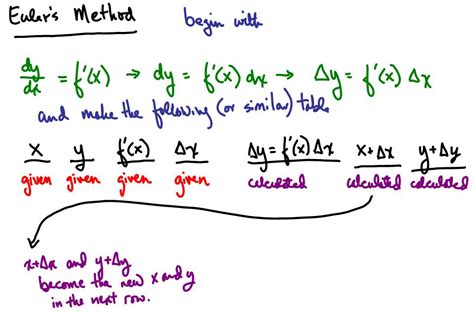 Euler's Method begin with
dy/dx = f'(x) → dy = f'(x) dx → Δy = f'(x) Δx
and make the following (or similar) table
x y f'(x) Δx Δy = f'(x) Δx x+Δx y+Δy
given given given given calculated calculated calculated
x+Δx and y+Δy
become the new x and y
in the next row.